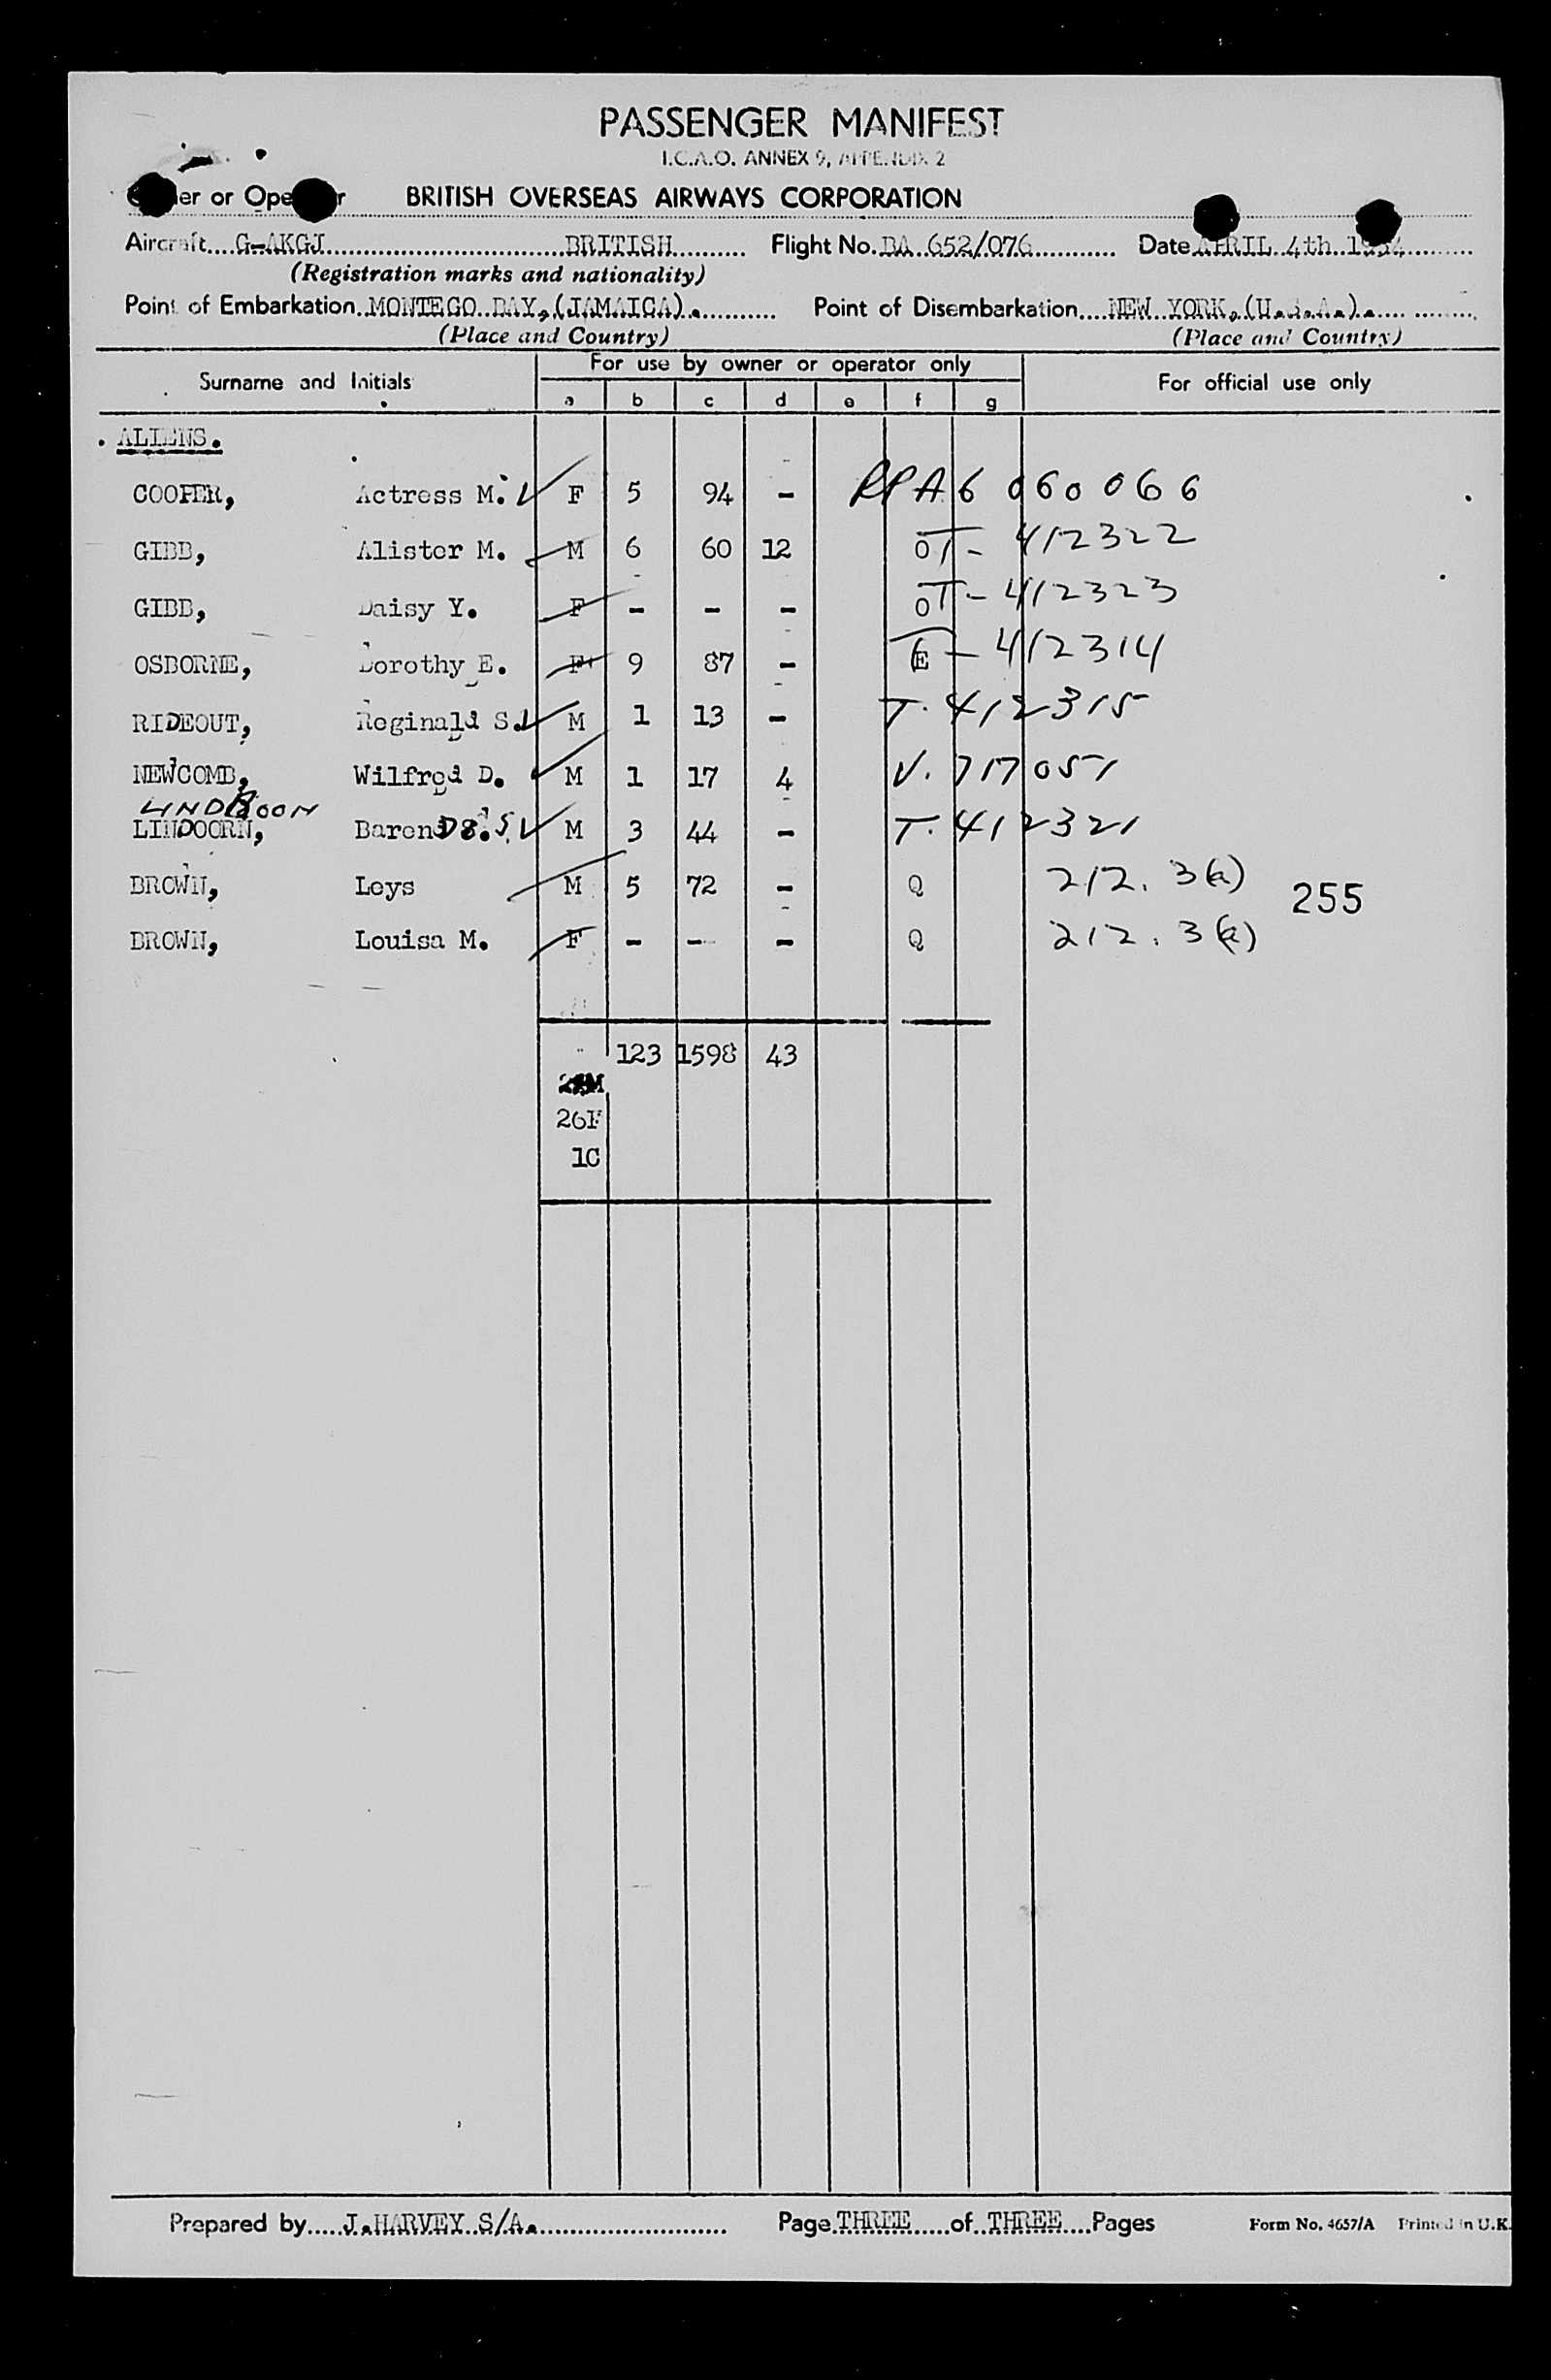 PASSENGER MANIFEST
I.C.A.O. ANNEX 9, APPENDIX 2
Owner or Operator BRITISH OVERSEAS AIRWAYS CORPORATION
Aircraft G-AKGJ BRITISH Flight No. BA 652/076 Date APRIL 4th 1954
(Registration marks and nationality)
Point of Embarkation MONTEGO BAY, (JAMAICA). Point of Disembarkation NEW YORK, (U.S.A.).
(Place and Country) (Place and Country)
Surname and Initials For use by owner or operator only For official use only
a b c d e f g
ALIENS.
COOPER, Actress M. F 5 94 - 6 060 066
GIBB, Alister M. M 6 60 12 O T - 412322
GIBB, Daisy Y. F - - - O T - 412323
OSBORNE, Dorothy E. F 9 87 - E - 412314
RIDEOUT, Reginald S. M 1 13 - T. 412315
NEWCOMB, Wilfred D. M 1 17 4 V. 717051
LINDBOON
LINDOORN, Baren M 3 44 - T. 412321
BROWN, Leys M 5 72 - Q 212. 3(a) 255
BROWN, Louisa M. F - - - Q 212. 3(a)
123 1598 43
26F
1C
Prepared by J.HARVEY S/A. Page THREE of THREE Pages Form No. 4657/A Printed in U.K.